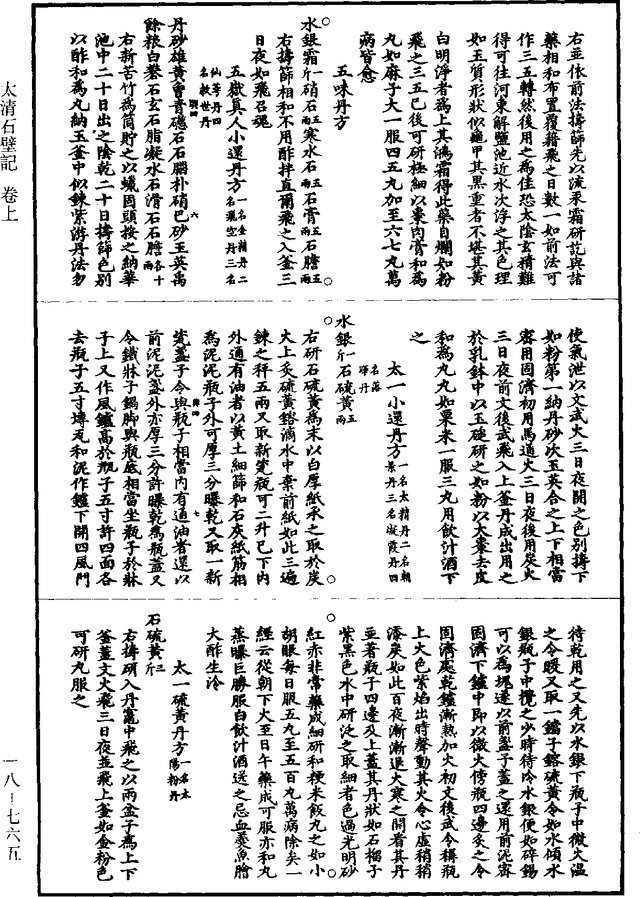 太清石壁記 卷上
一八-七六五
右並依前法擣篩先以流汞霜研訖與諸
藥相和布置覆藉飛之日數一如前法可
作三五轉然後用之為佳恐太陰玄精難
得可往河東解鹽池近水次浮之其色理
如玉質形狀似龜甲其黑重者不堪其黃
白明淨者為上其鴻霜得此藥自爛如粉
飛之三五已後可研極細以棗肉膏和為
丸如麻子大一服四五丸加至六七丸萬
病皆愈
五味丹方
水銀霜一斤硝石五兩寒水石五兩石膏五兩石膽五兩
右擣篩相和不用酢拌直爾飛之入釜三
日夜如飛召魂
五嶽真人小還丹方一名金精丹二名飛空丹三名仙芳丹四名救世丹
丹砂雄黃曾青礠石石腦朴硝巴砂玉英禹
餘粮白礬石玄石脂凝水石滑石石膽各十兩
右新苦竹為筒貯之以蠟固頭按之納華
池中二十日出之陰乾二十日擣篩色別
以酢和為丸納玉釜中似鍊紫游丹法勿
使氣泄以文武火三日夜開之色別擣下
如粉第一納丹砂次玉英合之上下相當
密用固濟初用馬通火三日夜後用炭火
三日夜前文後武飛入上釜丹成出用之
於乳鉢中以玉磓研之如粉以大棗去皮
和為丸丸如粟米一服三丸用飲汁酒下
之
太一小還丹方一名太精丹二名朝景丹三名凝霞丹四名落暉丹
水銀一斤石硫黃五兩
右研石硫黃為末以白厚紙承之取於炭
火上炙硫黃鎔滴水中棄前紙如此三遍
鍊之秤五兩又取新瓷瓶可二升已下內
外通有油者以黃土細篩和石灰紙筋相
為泥泥瓶子外可厚三分曝乾又取一新
瓷盞子令與瓶子相當內有通油者還以
前泥泥盞外亦厚三分許曝乾為瓶蓋又
令鐵牀子鍋脚與瓶底相當坐瓶子於牀
子上又作風鑪高於瓶子五寸許四面各
去瓶子五寸塼瓦和泥作鑪下開四風門
待乾用之又先以水銀下瓶子中微火溫
之令暖又取一鐺子鎔硫黃令如水傾水
銀瓶子中攪之少時待冷水銀便如碎錫
可以為塊遂以前盞子蓋之還用前泥密
固濟下鑪中即以微火傍瓶四邊炙之令
固濟處乾鑪漸熱加火初文後武令稱瓶
上火色紫焰出時聲動其火令心虛稍稍
漆炭如此百夜漸漸退火寒之開看其丹
並著瓶子四邊及上蓋其丹狀如石榴子
紫黑色水中研泛之取細者色過光明砂
紅赤非常藥成細研和粳米飯丸之如小
胡眼每日服五丸至五百丸萬病除矣一
經云從朝下火至日午藥成可服亦和丸
蒸曝巨勝服白飲汁酒送之忌血羹魚膾
大酢生冷
太一硫黃丹方一名太陽粉丹
石硫黃三斤
右擣研入丹竈中飛之以兩盆子為上下
釜蓋文火飛三日夜並飛上釜如金粉色
可研丸服之